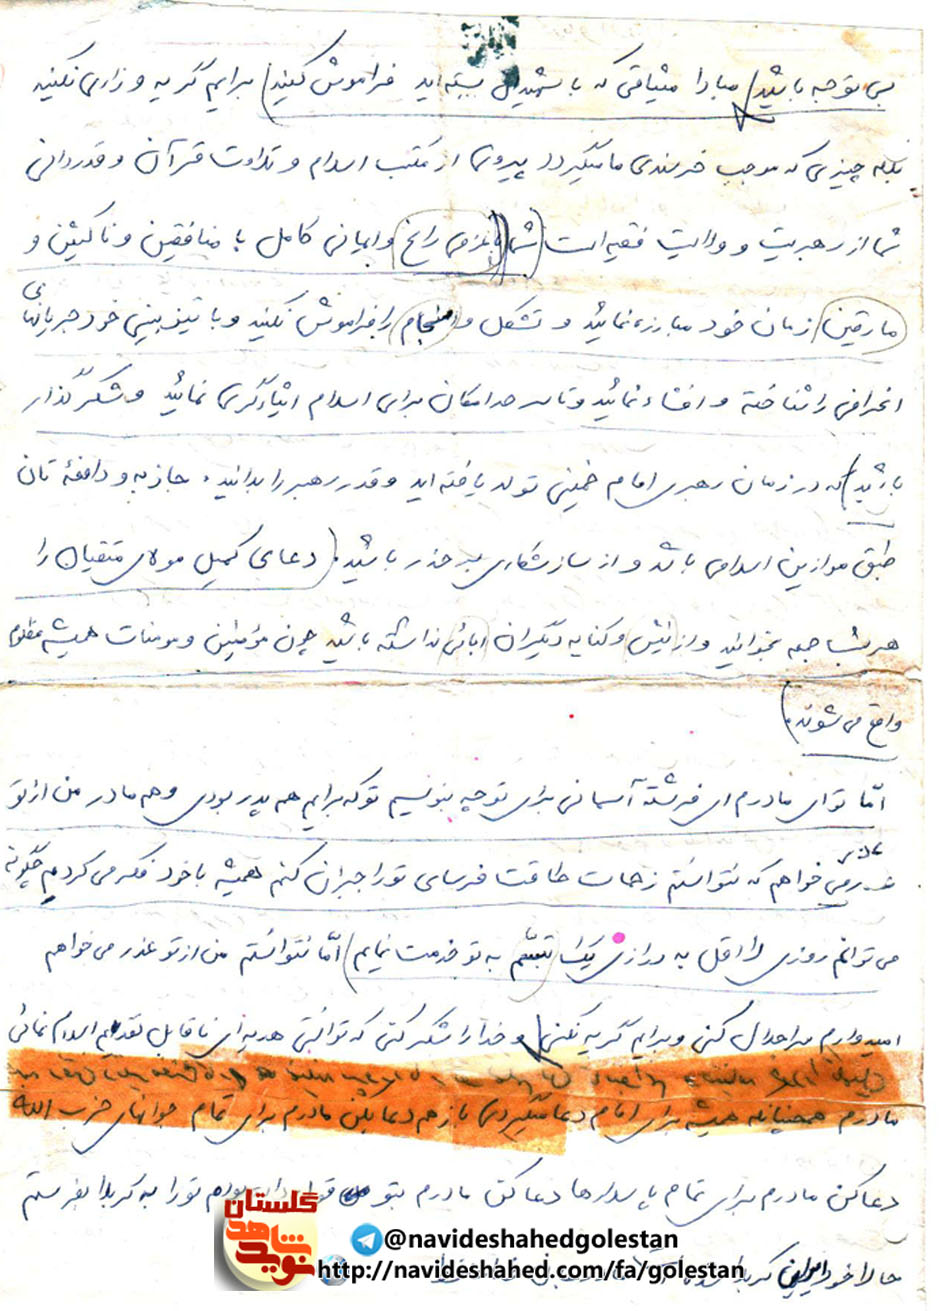 بی توجه باشید) مبادا میثاقی که با شهیدان بسته اید فراموش کنید) برایم گریه و زاری نکنید
بلکه چیزی که موجب خرسندی ما میگردد پیروی از مکتب اسلام و تلاوت قرآن و قدردانی
شما از رهبریت و ولایت فقیه است (شما با عزمی راسخ و ایمانی کامل با منافقین و ناکثین و
مارقین زمان خود مبارزه نمائید و تشکل و انسجام را فراموش نکنید و با تیزبینی خود جریانهای
انحرافی را شناخته و افشاء نمائید و تا سر حد امکان برای اسلام ایثارگری نمائید و شکرگذار
باشید) که در زمان رهبری امام خمینی تولد یافته اید و قدر رهبر را بدانید. جاذبه و دافعهٔ تان
طبق موازین اسلامی باشد و از سازشکاری بر حذر باشید. (دعای کمیل مولای متقیان را
هر شب جمعه بخوانید و از نیش و کنایه دیگران ابائی نداشته باشید چون مؤمنین و مومنات همیشه مظلوم
واقع می شوند.)
امّا توای مادرم ای فرشته آسمانی برای تو چه بنویسم تو که برایم هم پدر بودی و هم مادر من از تو
عذر می خواهم که نتوانستم زحمات طاقت فرسای تو را جبران کنم همیشه با خود فکر می کردم چگونه
می توانم روزی لااقل به درازی یک تبسّم به تو خدمت نمایم) امّا نتوانستم من از تو عذر می خواهم
امیدوارم مرا حلال کنی و برایم گریه نکنی) و خدا را شکر کنی که توانستی هدیه ای ناقابل تقدیم اسلام نمائی
مادرم همچنانکه همیشه برای امام دعا میکردی باز هم دعا بکن مادرم برای تمام جوانهای حزب الله
دعا کن مادرم برای تمام پاسدارها دعا کن مادرم بتو قول داده بودم تو را به کربلا بفرستم
حالا خود
گلستان
شاهد
نوید
@navideshahedgolestan
http://navideshahed.com/fa/golestan